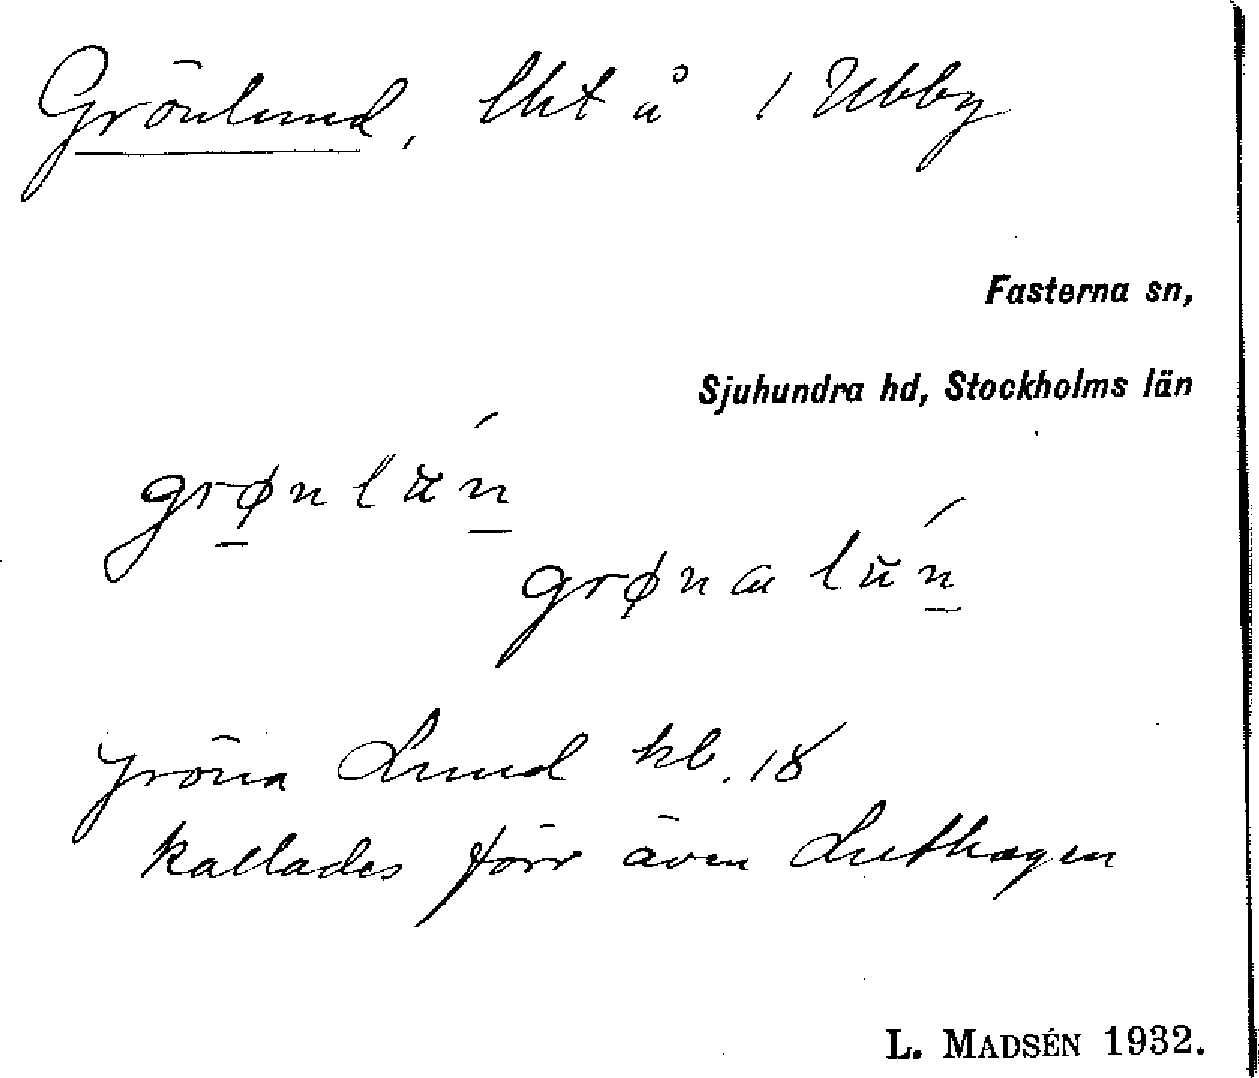 Grönlund, lht å 1 Ubby
Fasterna sn,
Sjuhundra hd, Stockholms län
grønlŭń
grønalŭń
gröna Lund kb. 18
kallades förr även Luthagen
L. MADSÉN 1932.